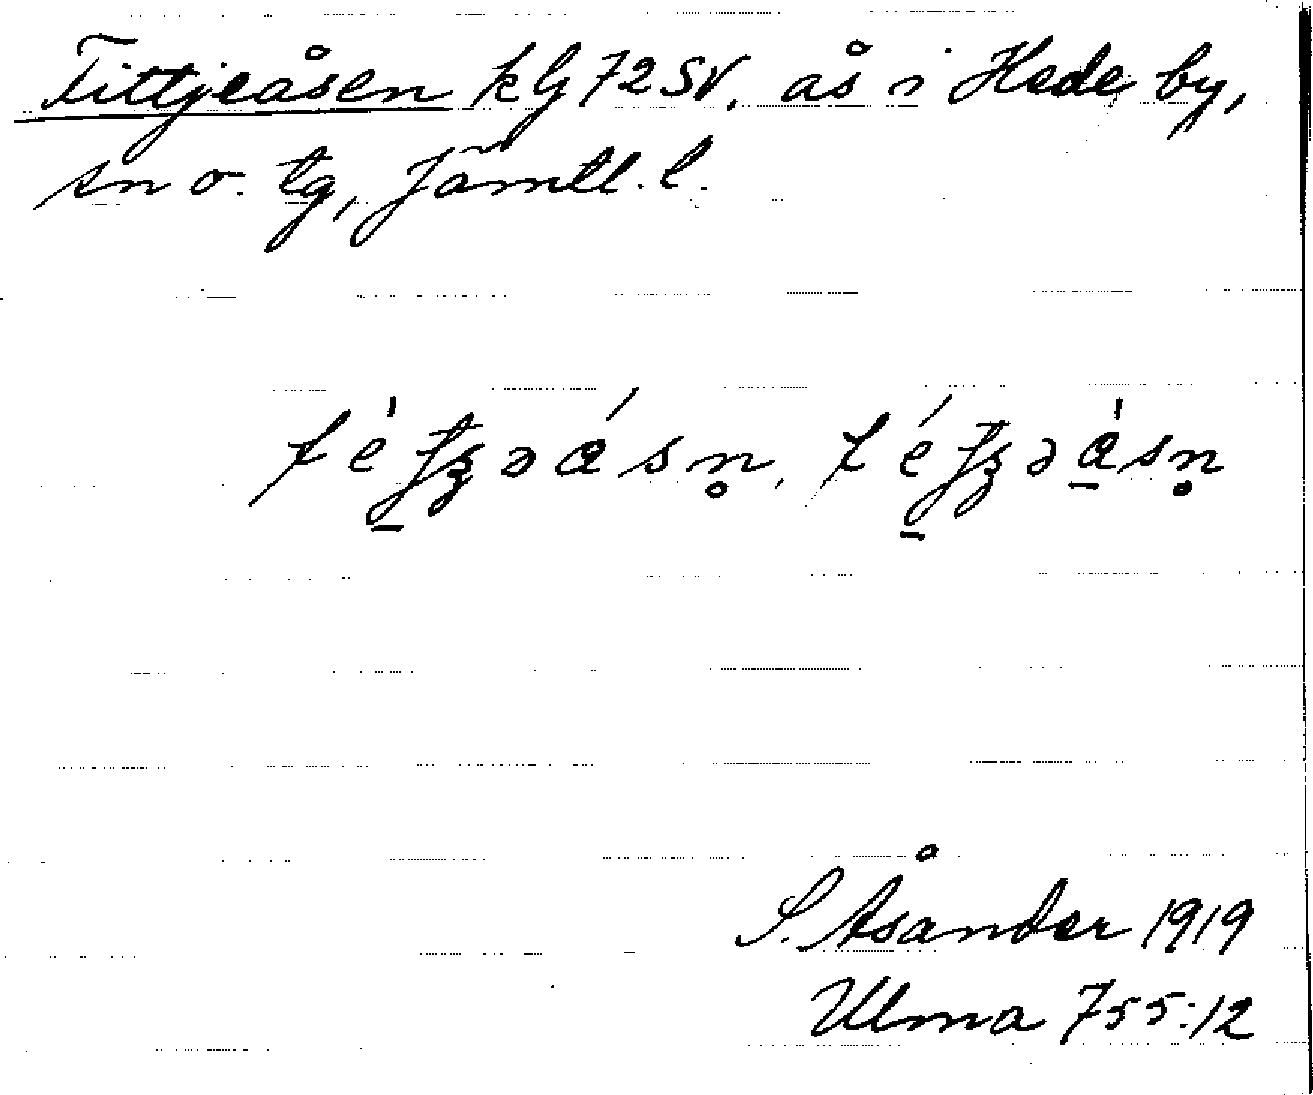 Tittjeåsen kG 72 SV. ås i Hede by,
sn o. tg, Jämtl. l.
S. Åsander 1919
Ulma 755:12